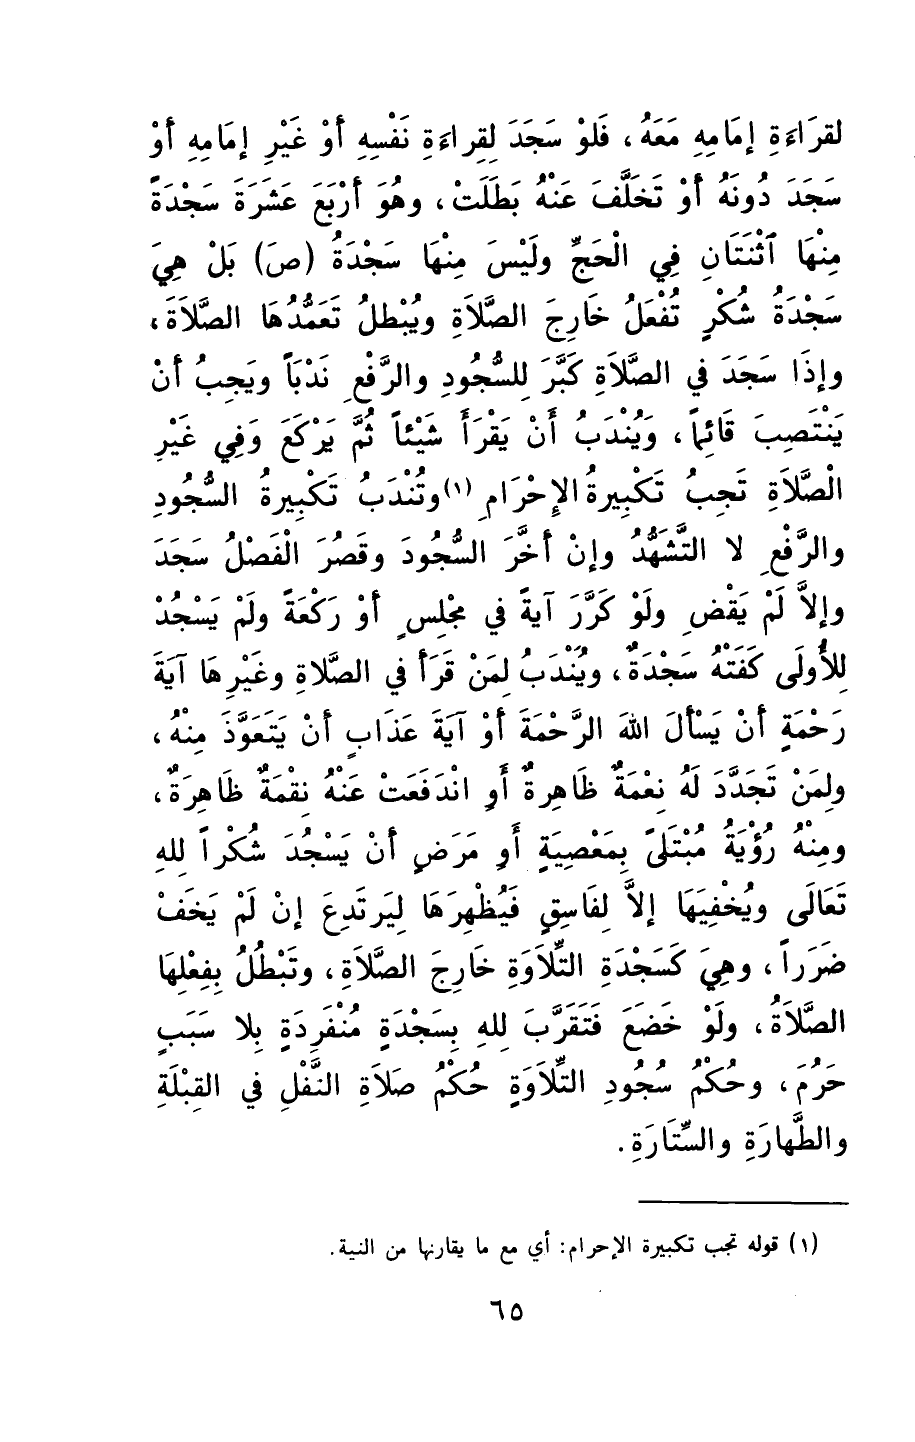 لقرَاءَةِ إمَامِهِ مَعَهُ، فَلوْ سَجَدَ لِقِراءَةِ نَفْسِهِ أوْ غَيْرِ إمَامِهِ أوْ
سَجَدَ دُونَهُ أوْ تَخَلَّفَ عَنْهُ بَطَلَتْ، وهُوَ أرْبَعَ عَشَرَةَ سَجْدَةً
مِنْهَا ٱثْنَتَانِ فِي الْحَجِّ ولَيْسَ مِنْهَا سَجْدَةُ (صَ) بَلْ هِيَ
سَجْدَةُ شُكْرٍ تُفْعَلُ خَارِجَ الصَّلاَةِ ويُبْطلُ تَعَمُّدُهَا الصَّلاَةَ،
وإذَا سَجَدَ في الصَّلاَةِ كَبَّرَ لِلسُّجُودِ والرَّفْعِ نَدْبَاً ويَجِبُ أنْ
يَنْتَصِبَ قَائِماً، وَيُنْدَبُ أَنْ يَقْرَأَ شَيْئاً ثُمَّ يَرْكَعَ وَفِي غَيْرِ
الْصَّلاَةِ تَجِبُ تَكْبِيرةُ الإِحْرَامِ (١) وتُنْدَبُ تَكْبِيرةُ السُّجُودِ
والرَّفْعِ لا التَّشَهُّدُ وإنْ أخَّرَ السُّجُودَ وقَصُرَ الْفَصْلُ سَجَدَ
وإلاَّ لَمْ يَقْضِ ولَوْ كَرَّرَ آيةً في مَجْلِسٍ أوْ رَكْعَةً ولَمْ يَسْجُدْ
لِلأُولَى كَفَتْهُ سَجْدَةٌ، ويُنْدَبُ لِمَنْ قَرَأَ في الصَّلاةِ وغَيْرِهَا آيَةَ
رَحْمَةٍ أنْ يَسْألَ اللهَ الرَّحْمَةَ أوْ آيَةَ عَذَابٍ أنْ يَتَعَوَّذَ مِنْهُ،
ولِمَنْ تَجَدَّدَ لَهُ نِعْمَةٌ ظَاهِرةٌ أَوِ انْدَفَعَتْ عَنْهُ نِقْمَةٌ ظَاهِرَةٌ،
ومِنْهُ رُؤْيَةُ مُبْتَلَىً بِمَعْصِيَةٍ أَوِ مَرَضٍ أنْ يَسْجُدَ شُكْراً للهِ
تَعَالَى ويُخْفِيَهَا إلاَّ لِفَاسِقٍ فَيُظْهِرَهَا لِيَرتَدِعَ إنْ لَمْ يَخَفْ
ضَرَراً، وهِيَ كَسَجْدَةِ التِّلاَوَةِ خَارِجَ الصَّلاَةِ، وتَبْطُلُ بِفِعْلِهَا
الصَّلاَةُ، ولَوْ خَضَعَ فَتَقَرَّبَ للهِ بِسَجْدَةٍ مُنْفَرِدَةٍ بِلا سَبَبٍ
حَرُمَ، وحُكْمُ سُجُودِ التِّلاَوَةِ حُكْمُ صَلاَةِ النَّفْلِ في القِبْلَةِ
والطَّهارَةِ والسِّتَارَةِ.
(١) قوله تجب تكبيرة الإحرام: أي مع ما يقارنها من النية.
٦٥